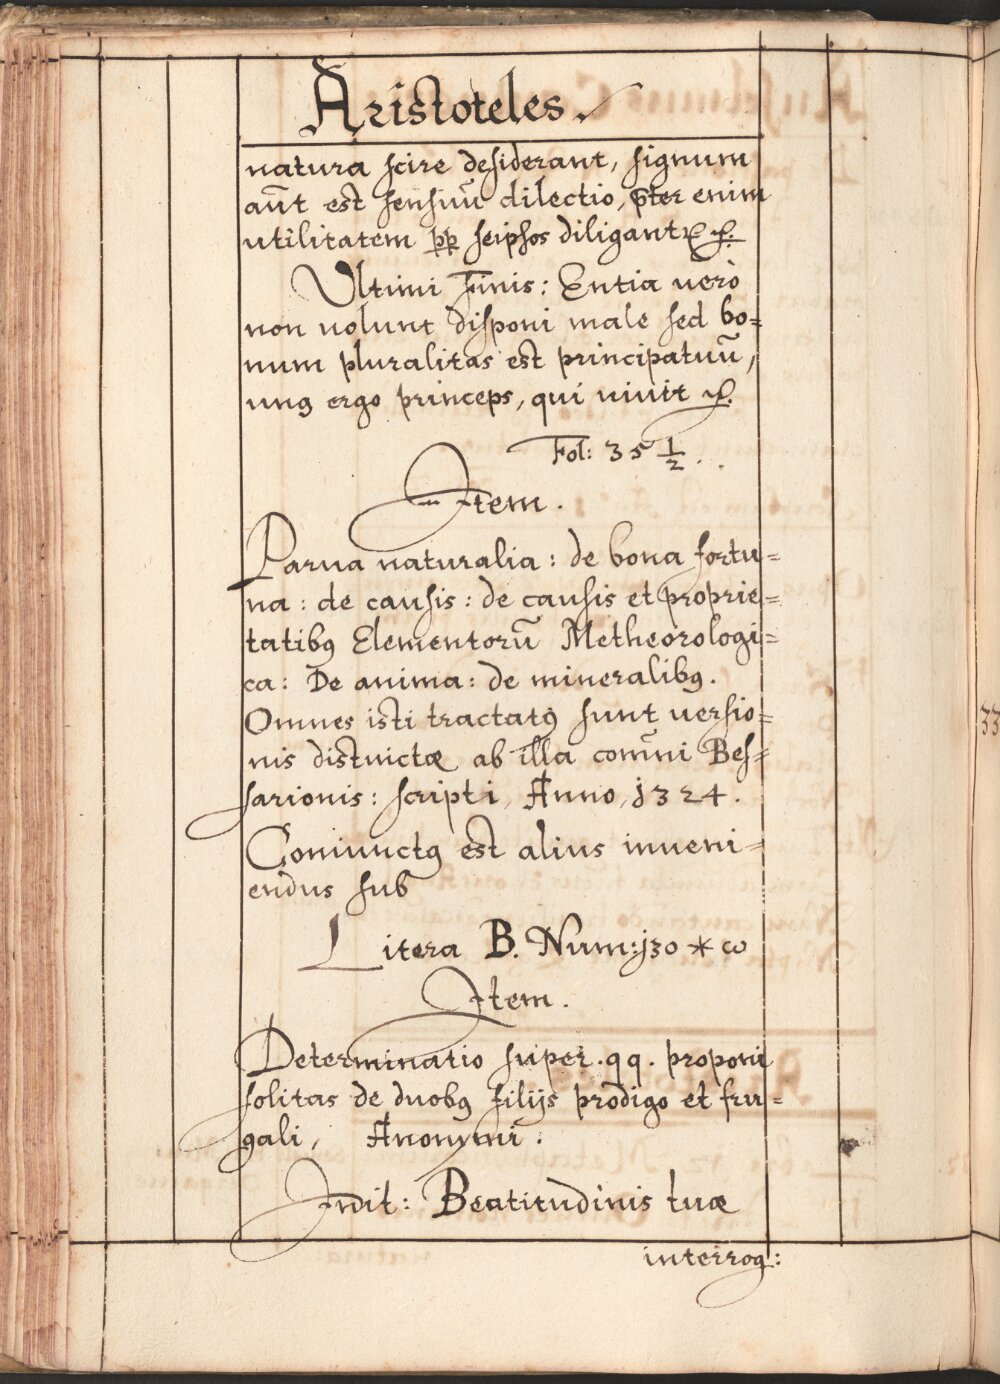 Aristoteles.
natura scire desiderant, signum
aūt est sensuū dilectio, p̄ter enim
utilitatem pp seipsos diligantr
Ultimi Finis: Entia verò
non volunt disponi male sed bo=
num pluralitas est principatuū,
unꝰ ergo princeps, qui vivit
Fol: 35 1/2.
Item.
Parva naturalia: de bona fortu=
na: de causis: de causis et proprie=
tatibꝰ Elementorū Metheorologi=
ca: De anima: de mineralibꝰ.
Omnes isti tractatꝰ sunt versio=
nis distinctæ ab illa com̄uni Bes=
sarionis: scripti, Anno, 1324.
Coniunctꝰ est alius inveni=
endus sub
Litera B. Num: 130 * ω
Item.
Determinatio super .qq. proponi
solitas de duobꝰ filijs prodigo et fru=
gali, Anonymi.
Indit: Beatitudinis tuæ
interrog:
33